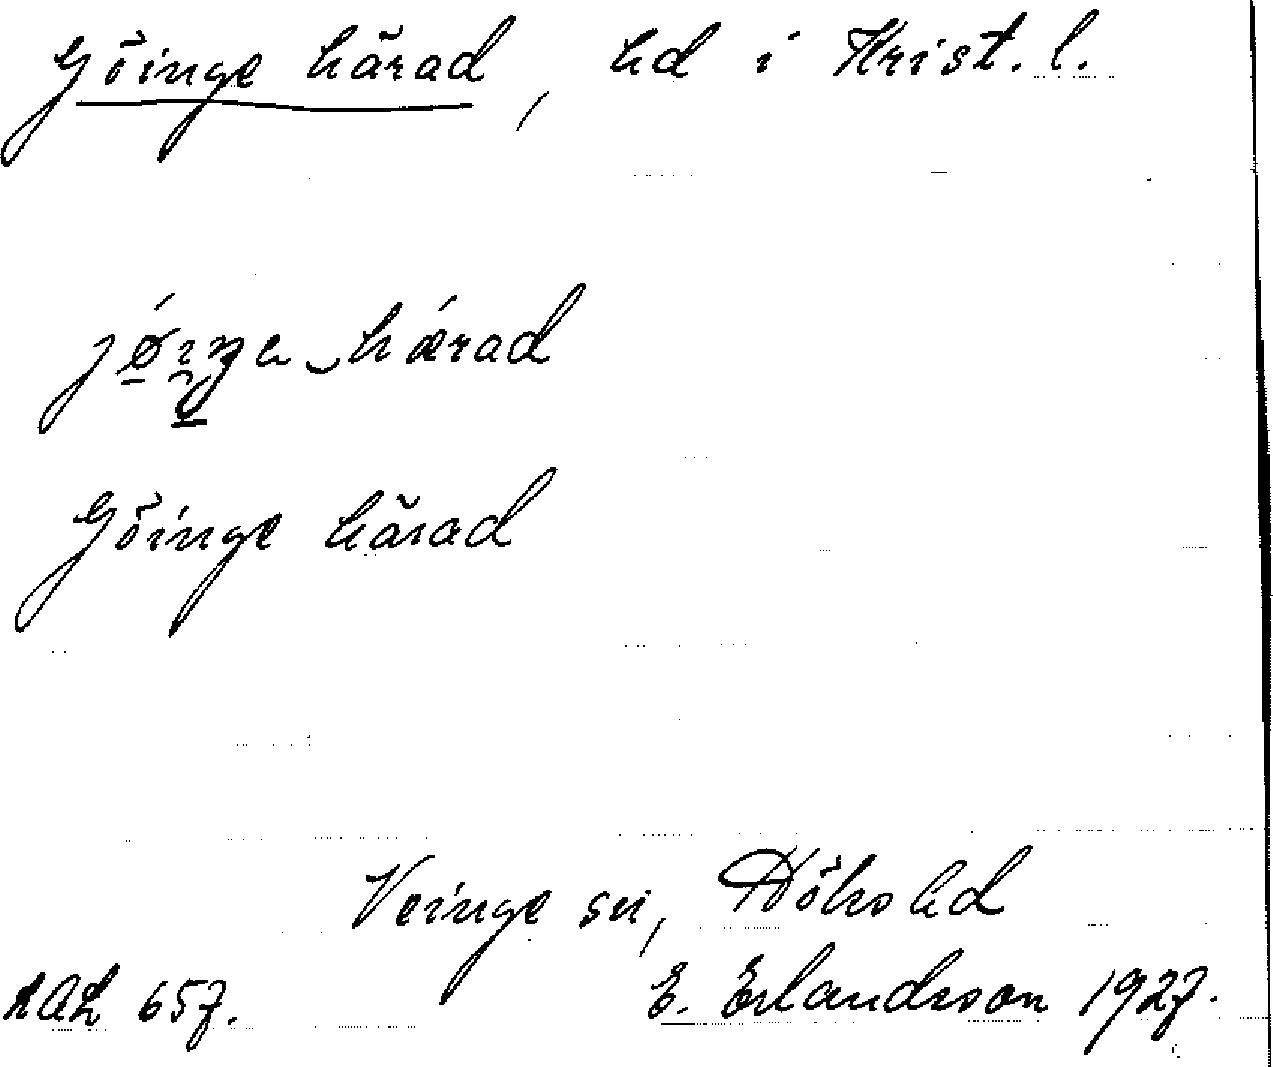 Göinge härad, hd i Krist. l.
härad
Göinge härad
Veinge sn, Höks hd
LAL 657. E. Erlandsson 1927.